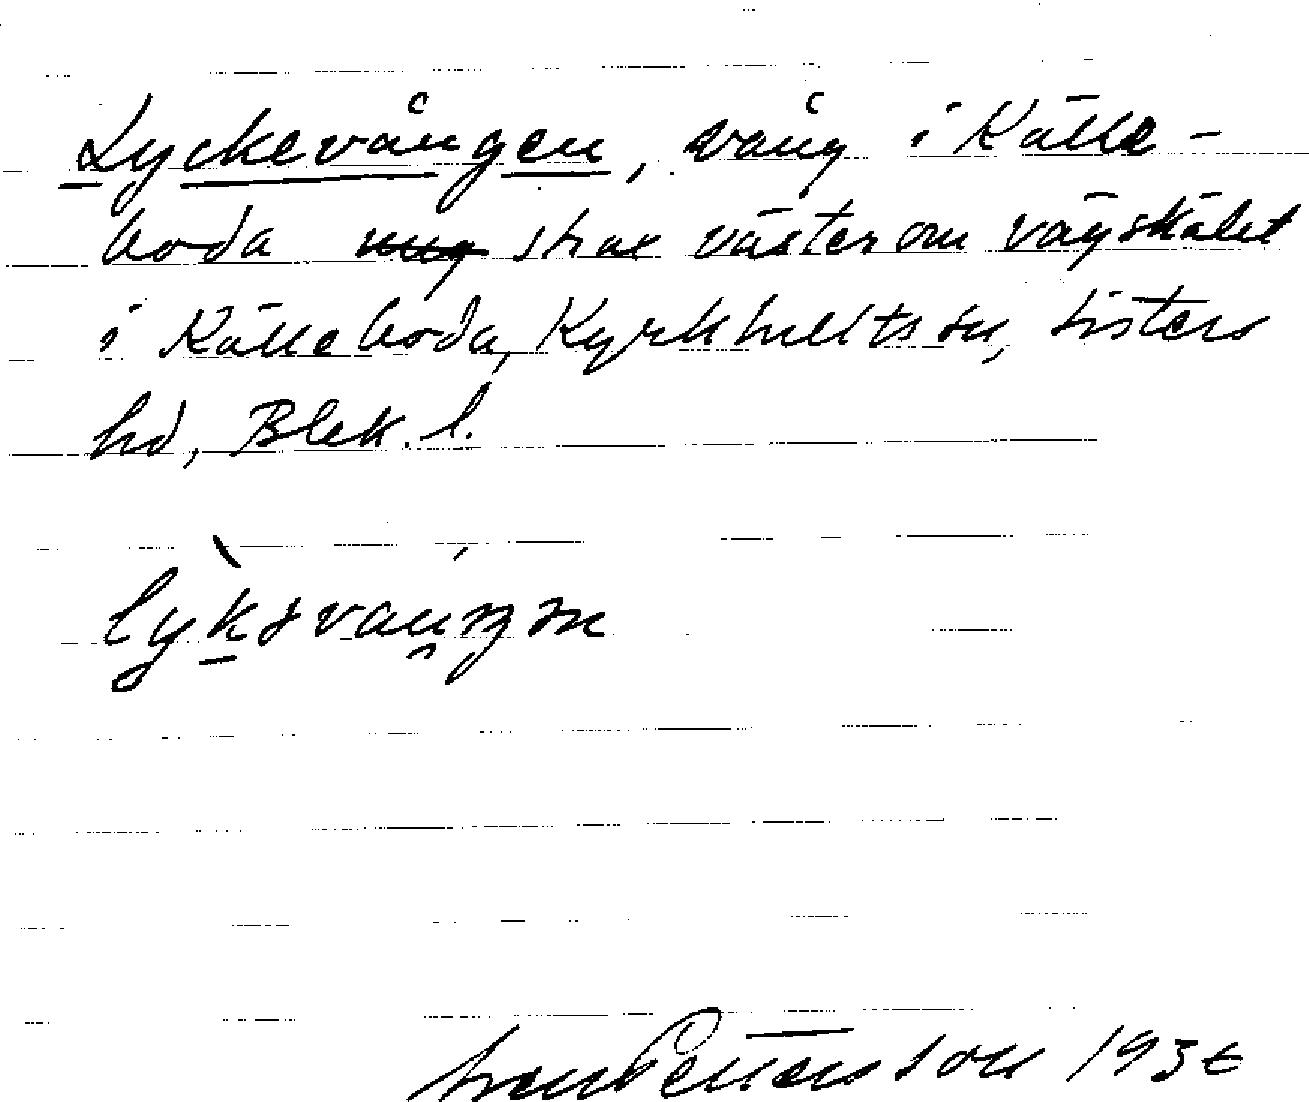 Lyckevången, vång i Källe-
boda strax väster om vägskälet
i Källeboda, Kyrkhults sn, Listers
hd, Blek. l.
Pettersson 1936